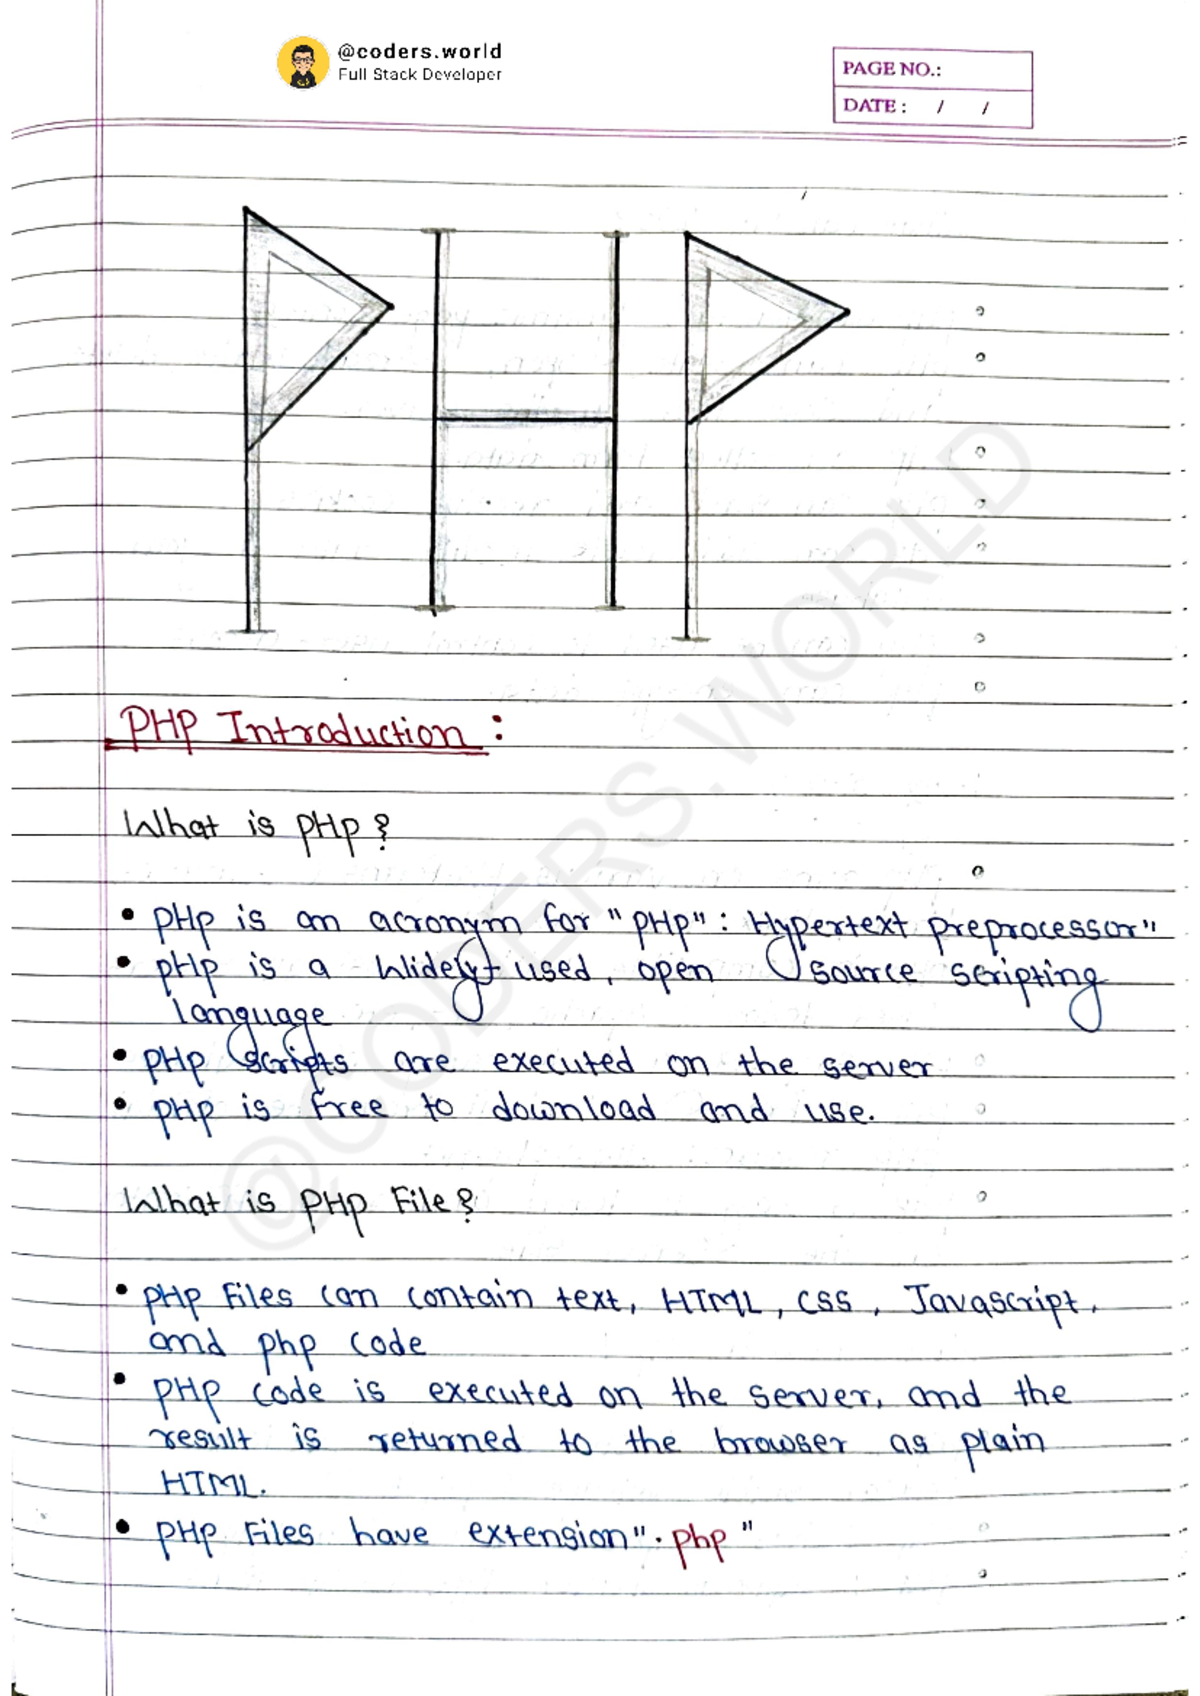 @coders.world
Full Stack Developer
PAGE NO.:
DATE: / /
PHP
PHP Introduction :
What is PHP?
• PHP is an acronym for "PHP" : Hypertext preprocessor"
• PHP is a Widely used, open source scripting
language
• PHP scripts are executed on the server
• PHP is free to download and use.
What is PHP File?
• PHP Files can contain text, HTML, CSS, Javascript,
and php code
• PHP code is executed on the server, and the
result is returned to the browser as plain
HTML.
• PHP Files have extension ".php"
@CODERS.WORLD